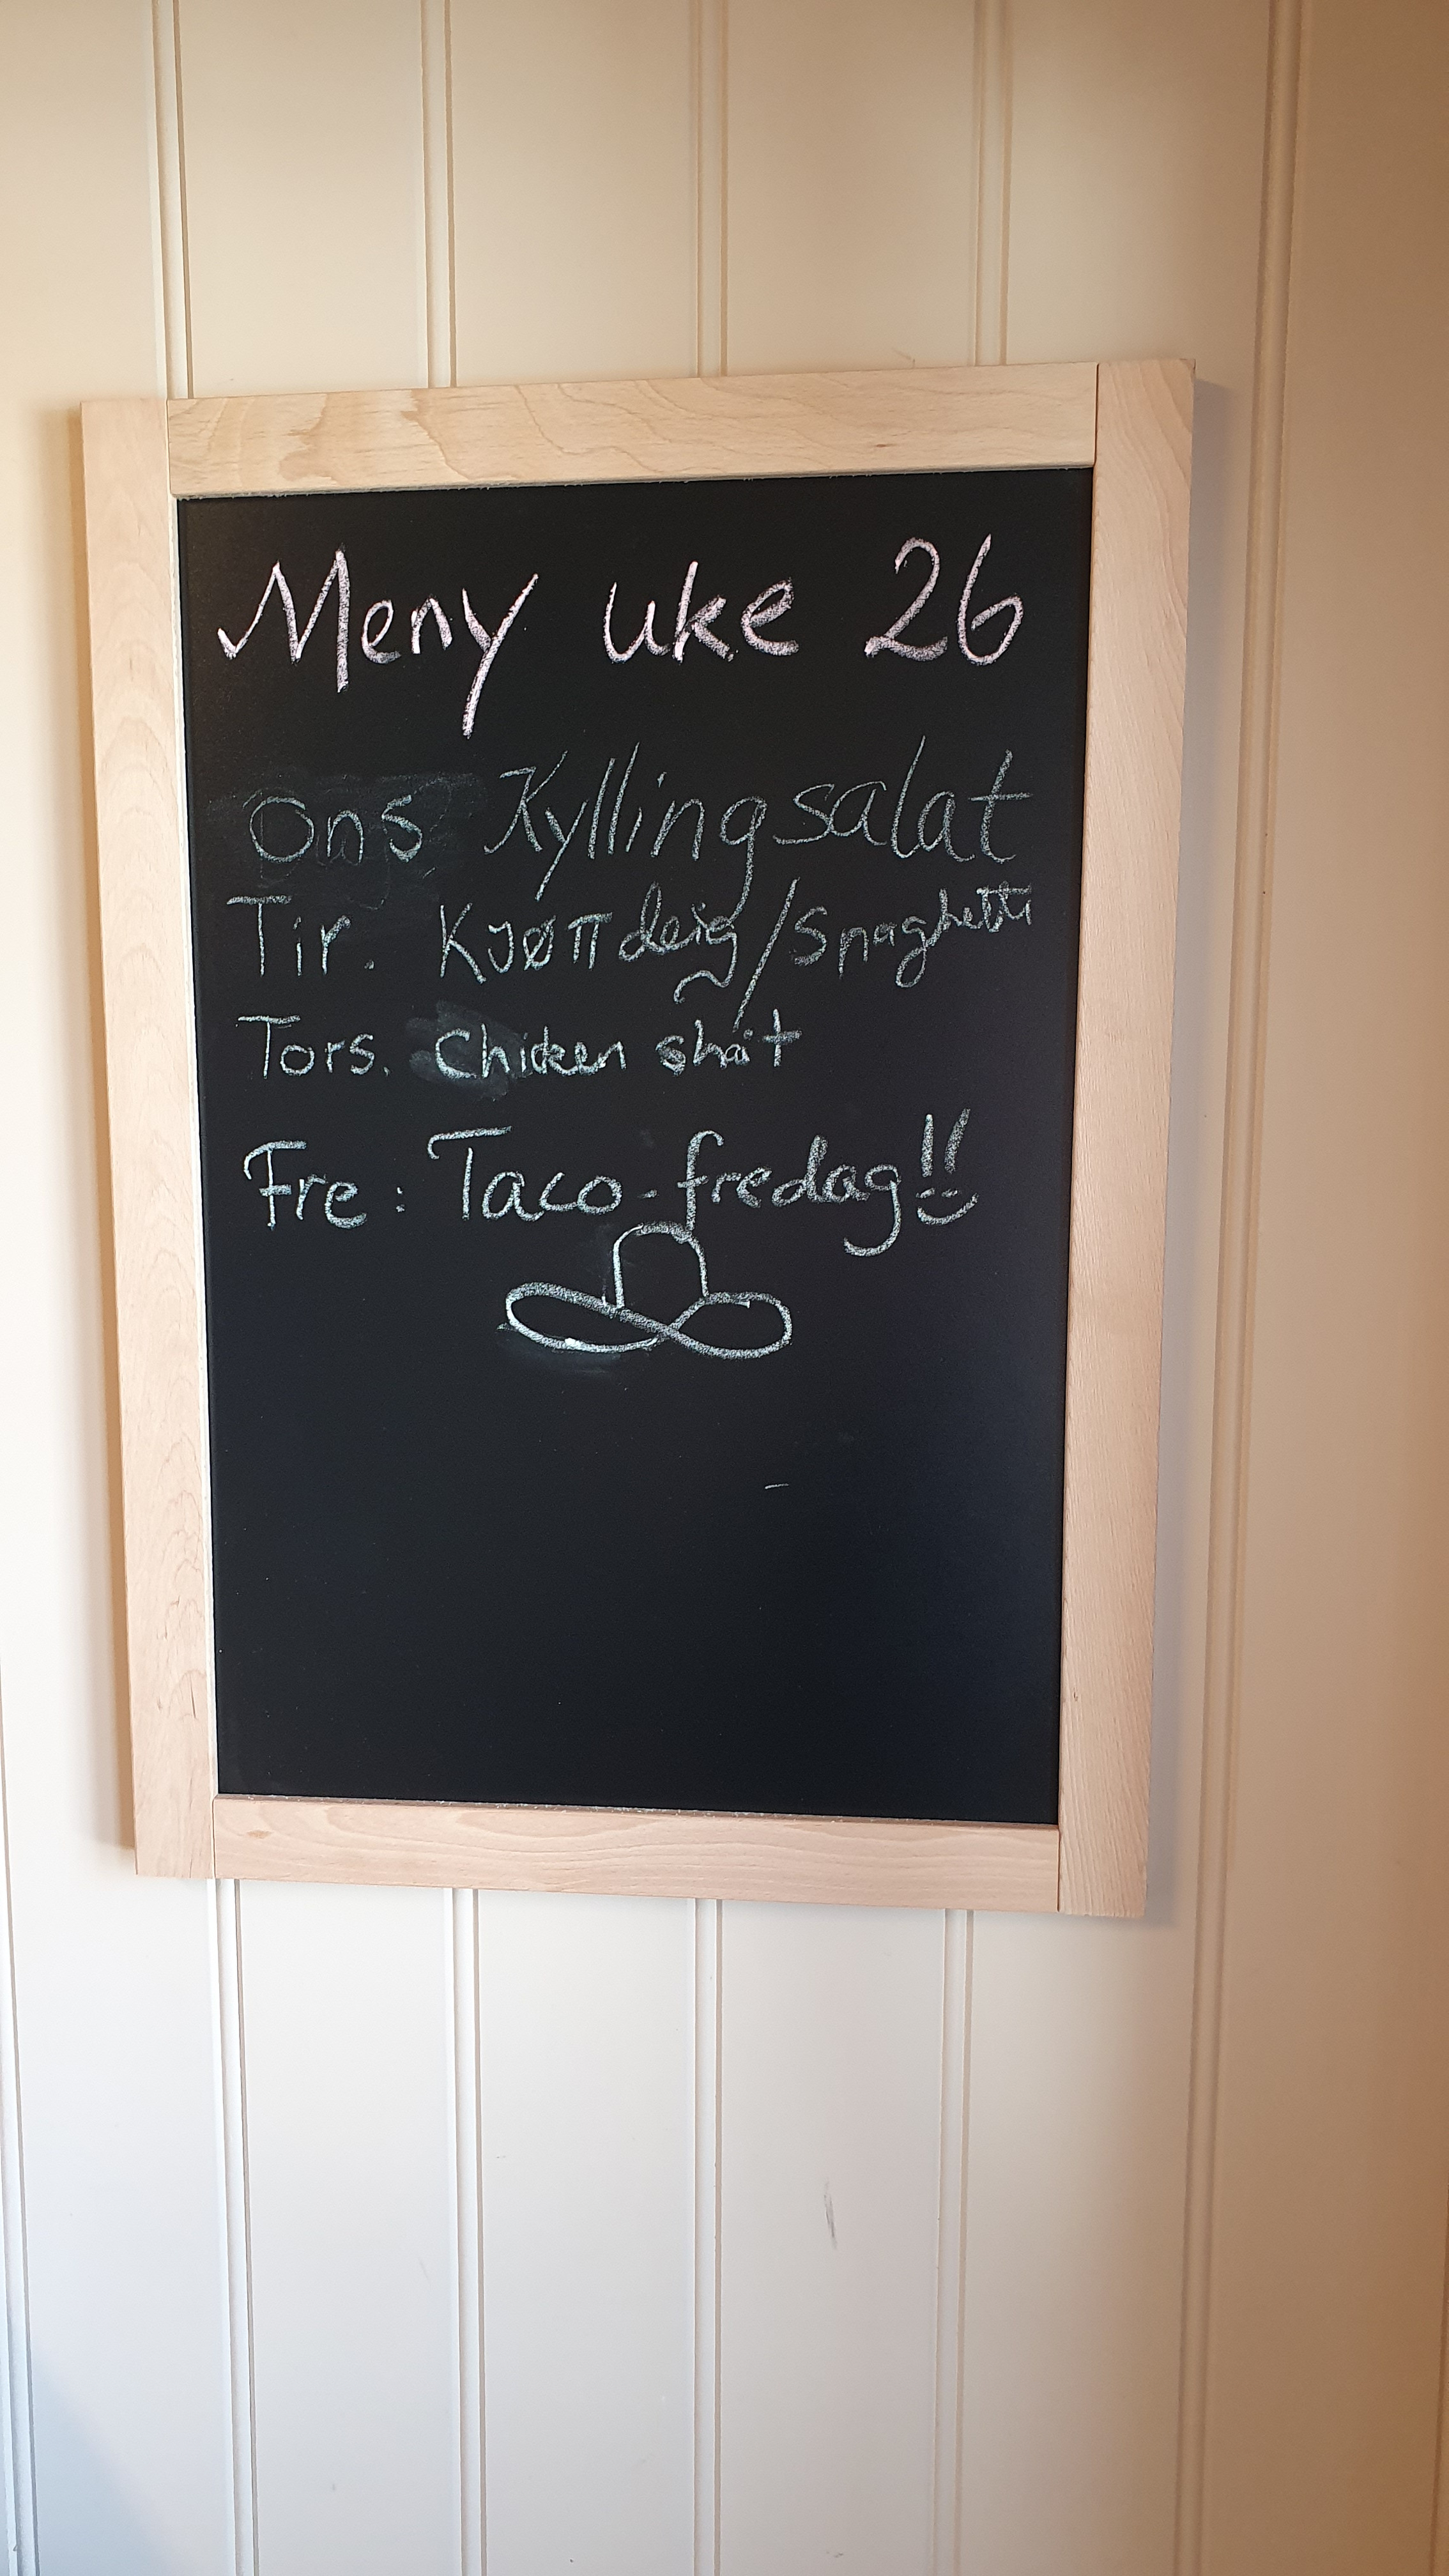 Meny uke 26
Ons Kyllingsalat
Tir. Kjøttdeig/Spaghetti
Tors. Chicken shait
Fre: Taco-fredag!!